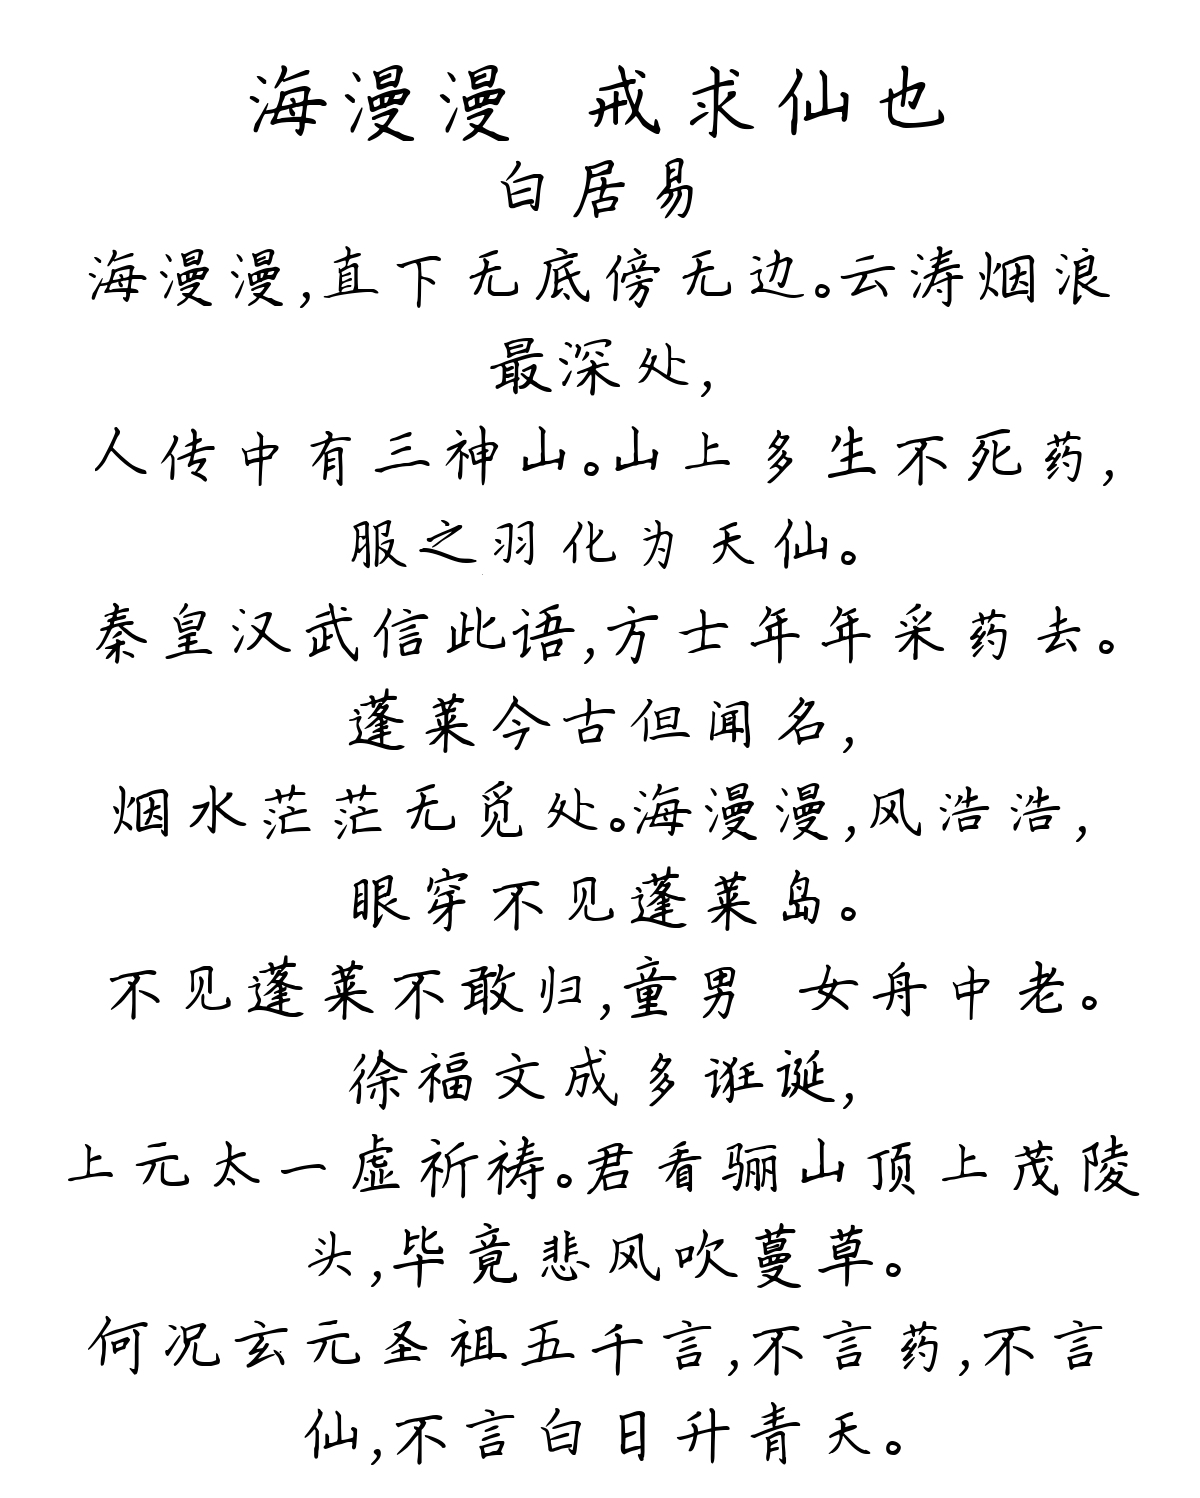 海漫漫 戒求仙也
白居易
海漫漫,直下无底傍无边。云涛烟浪
最深处,
人传中有三神山。山上多生不死药,
服之羽化为天仙。
秦皇汉武信此语,方士年年采药去。
蓬莱今古但闻名,
烟水茫茫无觅处。海漫漫,风浩浩,
眼穿不见蓬莱岛。
不见蓬莱不敢归,童男 女舟中老。
徐福文成多诳诞,
上元太一虚祈祷。君看骊山顶上茂陵
头,毕竟悲风吹蔓草。
何况玄元圣祖五千言,不言药,不言
仙,不言白日升青天。